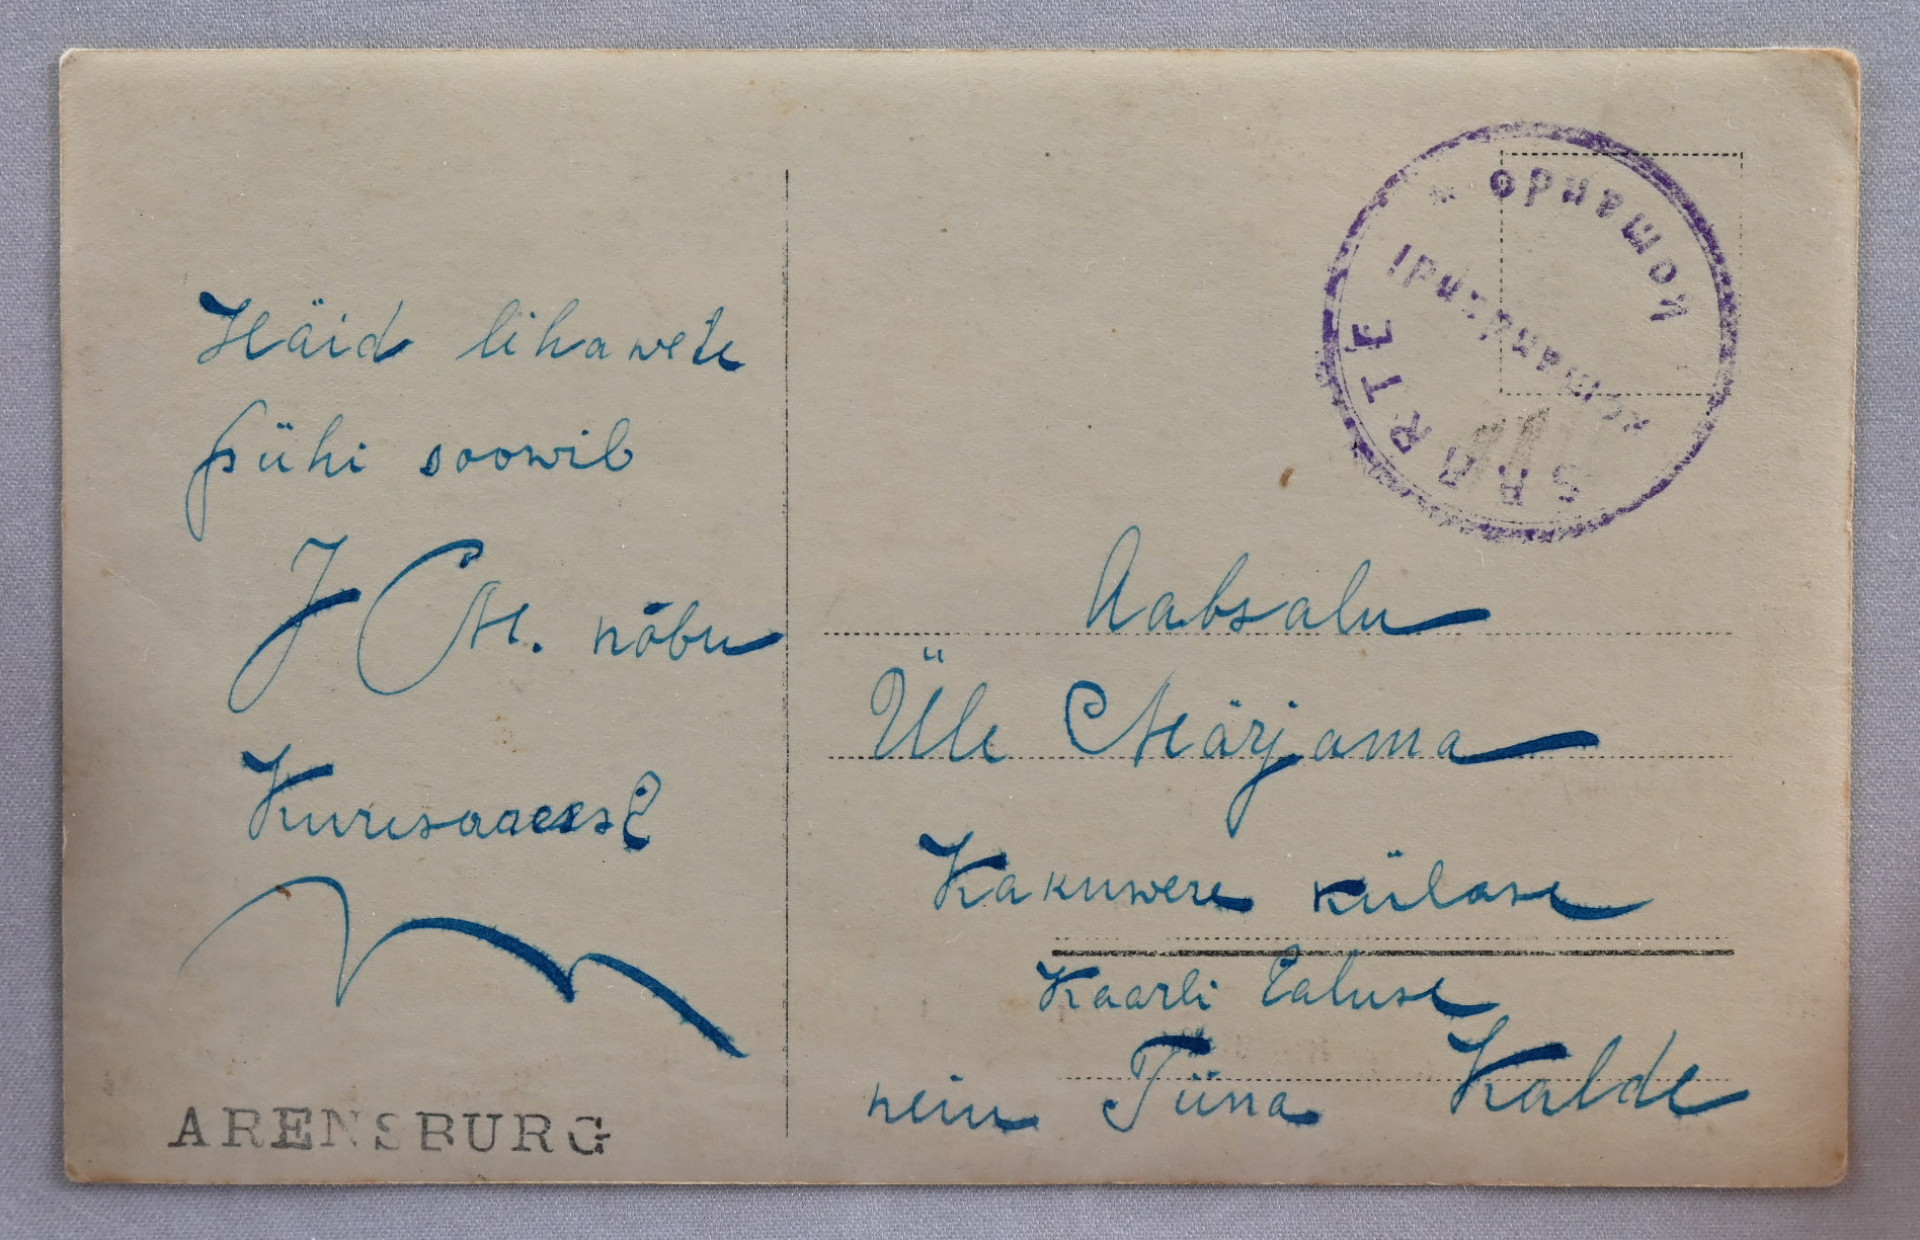 Häid lihawete
pühi soowib
J M. nõbu
Kuresaarest
ARENSBURG
SAARTE
komando
komandandi
Aabsalu
Üle Märjama
Kakuwere külase
Kaarli talusse
nein Tiina Kalde